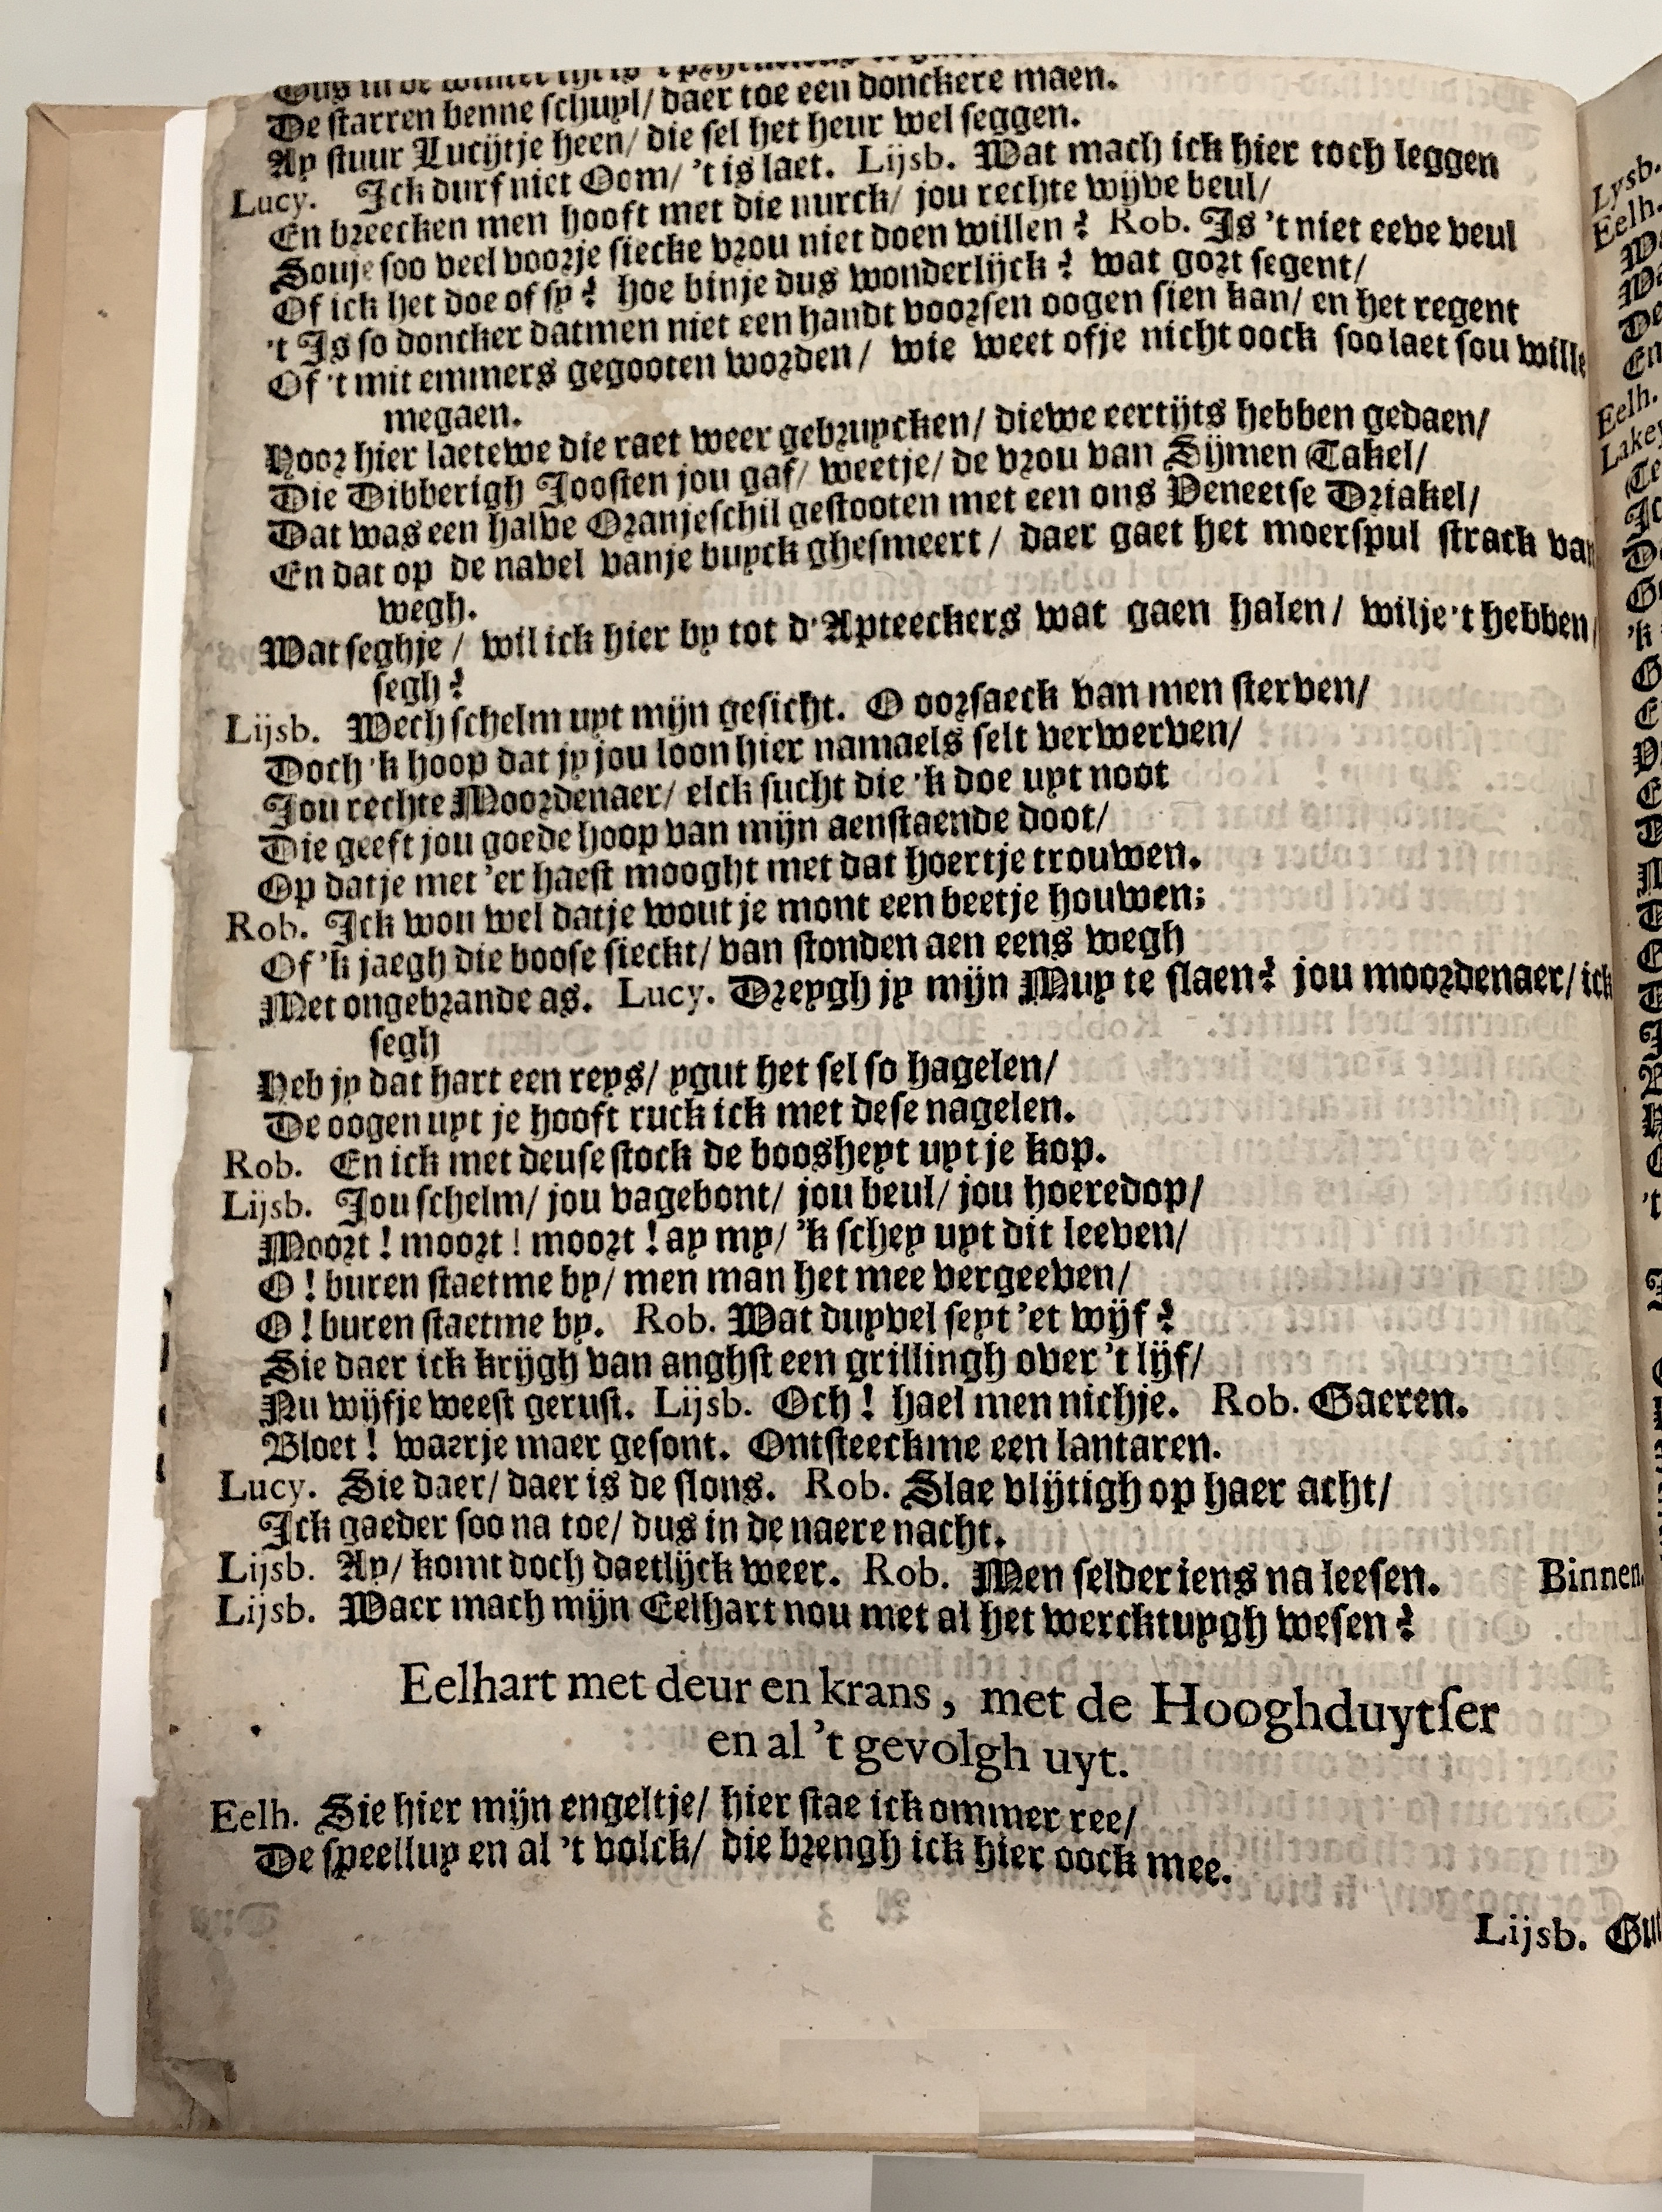 Dus in de winter
De starren benne schuyl/ daer toe een donckere maen.
Ay stuur Lucijtje heen/ die sel het heur wel seggen.
Lucy. Ick durf niet Oom/ 't is laet. Lijsb. Wat mach ick hier toch leggen
En breecken men hooft met die nurck/ jou rechte wijve beul/
Souje soo veel voorje siecke vrou niet doen willen? Rob. Is 't niet eeve veul
Of ick het doe of sy? hoe binje dus wonderlijck? wat gort segent/
't Is so doncker datmen niet een handt voorsen oogen sien kan/ en het regent
Of 't mit emmers gegooten worden/ wie weet ofje nicht oock soo laet sou wille
megaen.
Hoor hier laetewe die raet weer gebruycken/ diewe eertijts hebben gedaen/
Die Dibberigh Joosten jou gaf/ weetje/ de vrou van Sijmen Takel/
Dat was een halve Oranjeschil gestooten met een ons Veneetse Driakel/
En dat op de navel vanje buyck ghesmeert/ daer gaet het moerspul strack van
wegh.
Wat seghje/ wil ick hier by tot d'Apteeckers wat gaen halen/ wilje 't hebben/
segh?
Lijsb. Wech schelm uyt mijn gesicht. O oorsaeck van men sterven/
Doch 'k hoop dat jy jou loon hier namaels selt verwerven/
Jou rechte Moordenaer/ elck sucht die 'k doe uyt noot
Die geeft jou goede hoop van mijn aenstaende doot/
Op datje met 'er haest mooght met dat hoertje trouwen.
Rob. Ick wou wel datje wout je mont een beetje houwen;
Of 'k jaegh die boose sieckt/ van stonden aen eens wegh
Met ongebrande as. Lucy. Dreygh jy mijn Muy te slaen? jou moordenaer/ ick
segh
Heb jy dat hart een reys/ ygut het sel so hagelen/
De oogen uyt je hooft ruck ick met dese nagelen.
Rob. En ick met deuse stock de boosheyt uyt je kop.
Lijsb. Jou schelm/ jou vagebont/ jou beul/ jou hoeredop/
Moort! moort! moort! ay my/ 'k schey uyt dit leeven/
O! buren staetme by/ men man het mee vergeeven/
O! buren staetme by. Rob. Wat duyvel seyt 'et wijf?
Sie daer ick krijgh van anghst een grillingh over 't lijf/
Nu wijfje weest gerust. Lijsb. Och! hael men nichje. Rob. Gaeren.
Bloet! waerje maer gesont. Ontsteeckme een lantaren.
Lucy. Sie daer/ daer is de slons. Rob. Slae vlijtigh op haer acht/
Ick gaeder soo na toe/ dus in de naere nacht.
Lijsb. Ay/ komt doch daetlijck weer. Rob. Men selder iens na leesen. Binnen.
Lijsb. Waer mach mijn Eelhart nou met al het wercktuygh wesen?
Eelhart met deur en krans, met de Hooghduytser
en al 't gevolgh uyt.
Eelh. Sie hier mijn engeltje/ hier stae ick ommer ree/
De speelluy en al 't volck/ die brengh ick hier oock mee.
Lijsb.